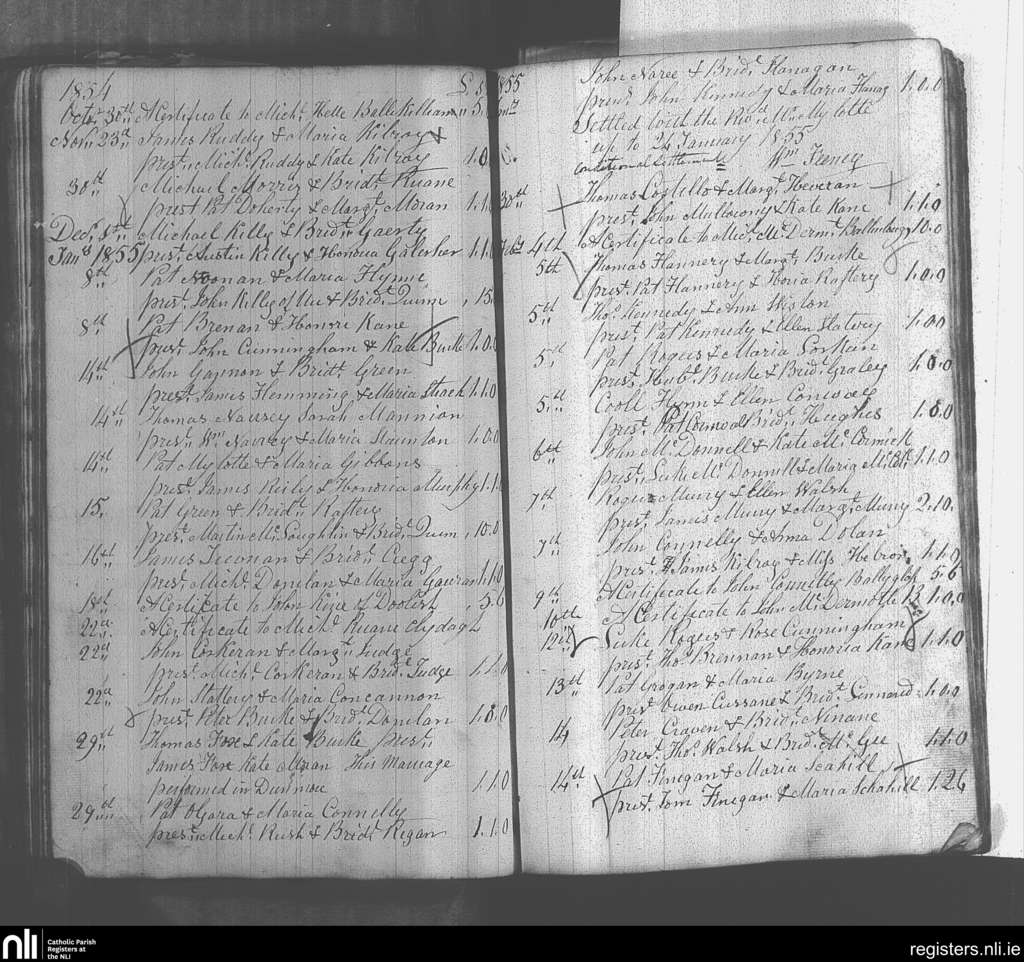 1854
Octr 30th A Certificate to Michl Helle Ballekilleen 5
Novr 23d James Ruddy & Maria Kilroy
prest Michl Ruddy & Kate Kilroy 1.0
30th Michael Morris & Bridt Ruane
prest Pat Doherty & Margt Moran 1.1.0
Decr 8th Michael Kelly & Bridt Gaerty
Jany 1855 prest Austin Killy & Honoria Galerher 1.1.0
8th Pat Noonan & Maria Flynne
prest John Killy of & Bridt Dunn , 15
8th Pat Brenan & Honore Kane
prest John Cunningham & Kate Burke 1.0.0
14th John Gannon & Bridt Green
prest James Flemming & Maria 1.1.0
14th Thomas Navsey Sarah Mannion
prest Wm Navsey & Maria Staunton 1.0.0
14th Pat Mylotte & Maria Gibbons
prest James Reily & Honoria Murphy 1.1
15, Pat Green & Bridt Raftery
prest Martin McLoughlin & Bridt Dunn , 10.0
16th James & Bridt Cregg
prest Michl Donelan & Maria Gavran 1.1.0
18th A Certificate to John of , 5.6
22d A Certificate to Michl Ruane Clydagh
22d John Corkeran & Margt Judge
prest Michl Corkeran & Bridt Judge 1.1.0
22d John Slattery & Maria Concannon
prest Peter Burke & Bridt Donelan 1.0.0
29th Thomas Foxe & Kate Burke prest
James Foxe Kate Moran This Marriage
performed in Dunmore 1.1.0
29th Pat OGara & Maria Connelly
prest Michl Rush & Bridt Regan 1.1.0
1855
John Naree & Bridt Flanagan
prest John Kennedy & Maria Flanag 1.0.0
Settled with the Revd Mr Mylotte
up to 24 January 1855
conditional Settlement Wm Feeney
30th Thomas Costello & Margt Heveran
prest John Mullowny & Kate Kane 1.1.0
4th A Certificate to Mich McDerm 10.0
5th Thomas Flannery & Margt Burke
prest Pat Flannery & Honia Raftery 1.0.0
5th Thos Kennedy & Ann Weston
prest Pat Kennedy & Ellen Slatery 1.0.0
5th Pat Rogers & Maria
prest Hubt Burke & Bridt Graley 1.0.0
5th Flynn & Ellen Conwoel
prest Pat Conwoel Bridt Heughes 1.0.0
6th John McDonnell & Kate McCormick
prest Luke McDonnell & Maria 1.1.0
7th Roger Murry & Ellen Walsh
prest James Murry & Margt Murry 2.10.
7th John Connelly & Anna Dolan
prest James Kilroy & Miss Hebron 1.1.0
9th A Certificate to John Connelly 5.6
10th A Certificate to John McDermotte 1.0.0
12th Luke Rogers & Rose Cunningham
prest Thos Brennan & Honoria Kane 1.1.0
13th Pat Grogan & Maria Byrne
prest Owen Cussane & Bridt Gennard 1.0.0
14 Peter Craven & Bridt Ninane
prest Thos Walsh & Bridt McGee 1.1.0
14th Pat Finegan & Maria Scahill
prest Tom Finegan & Maria Schahill 1.2.6
nli Catholic Parish
Registers at
the NLI
registers.nli.ie